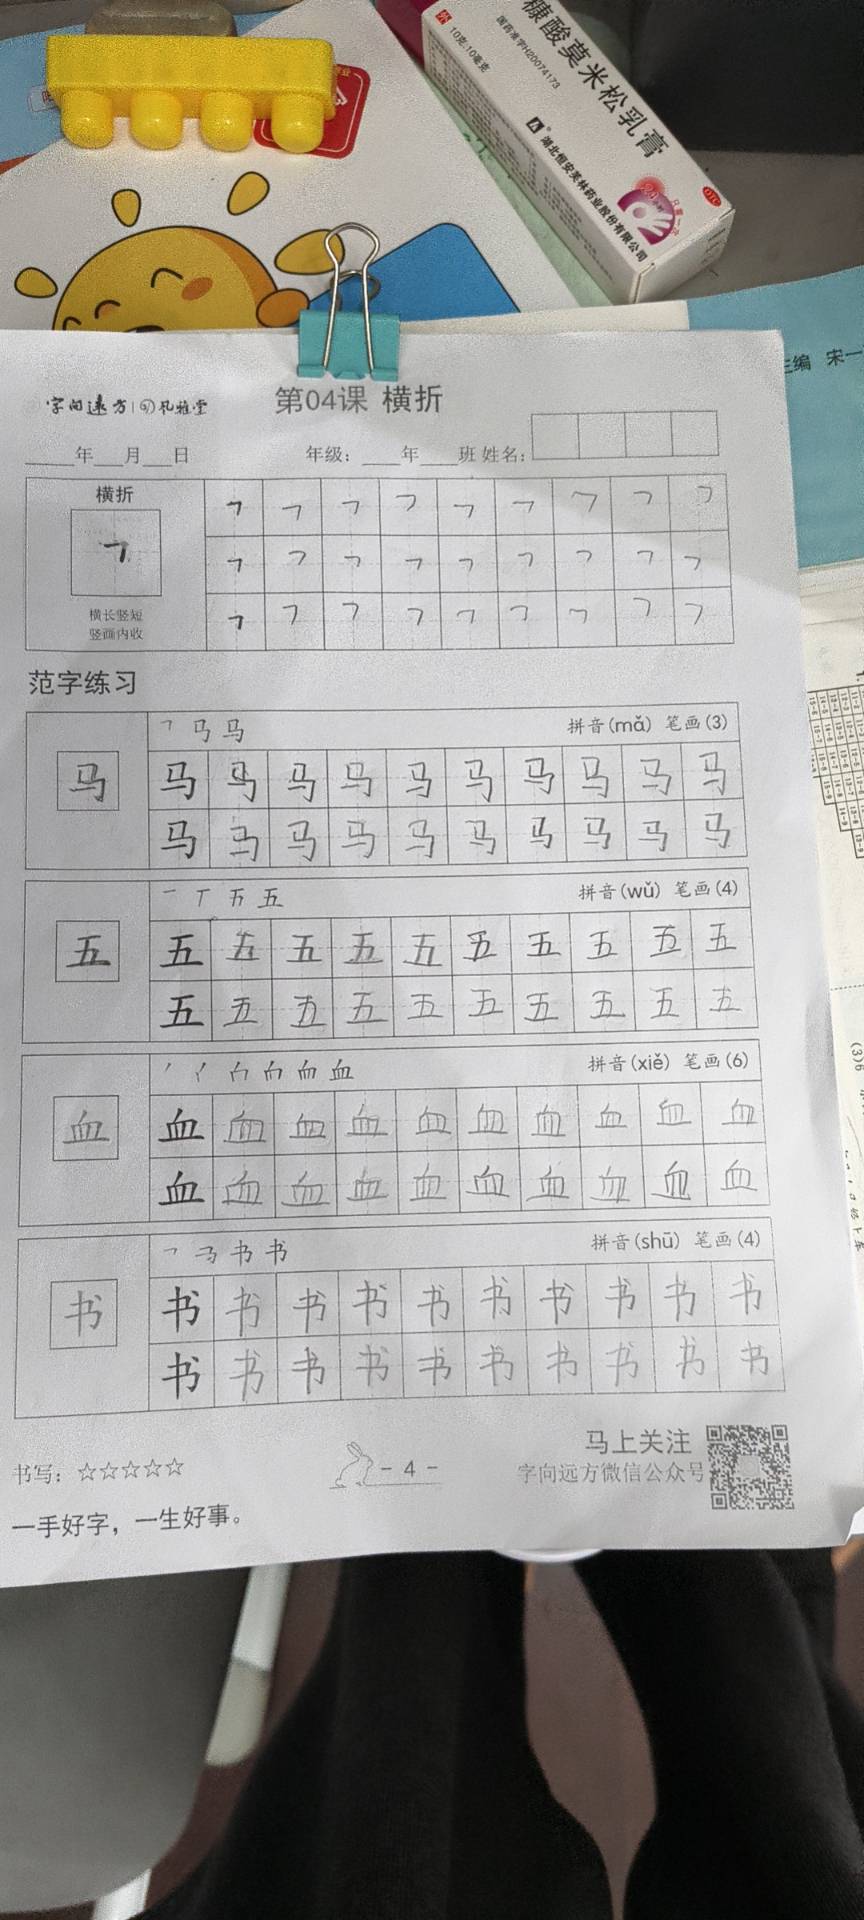 糠酸莫米松乳膏
10克:10毫克
国药准字H20074173
湖北恒安芙林药业股份有限公司
OTC
外
主编 宋一
字向远方
第04课 横折
____年___月___日
年级：____年____班 姓名：
横折
㇕ ㇕ ㇕ ㇕ ㇕ ㇕ ㇕ ㇕ ㇕
㇕ ㇕ ㇕ ㇕ ㇕ ㇕ ㇕ ㇕ ㇕ ㇕
横长竖短
竖画内收
㇕ ㇕ ㇕ ㇕ ㇕ ㇕ ㇕ ㇕ ㇕
范字练习
马 马
拼音(mǎ) 笔画(3)
马 马 马 马 马 马 马 马 马 马 马
马 马 马 马 马 马 马 马 马 马
一 丅 五
拼音(wǔ) 笔画(4)
五 五 五 五 五 五 五 五 五 五 五
五 五 五 五 五 五 五 五 五 五
血
拼音(xiě) 笔画(6)
血 血 血 血 血 血 血 血 血 血 血
血 血 血 血 血 血 血 血 血 血
书
拼音(shū) 笔画(4)
书 书 书 书 书 书 书 书 书 书 书
书 书 书 书 书 书 书 书 书 书
马上关注
书写：☆☆☆☆☆
- 4 -
字向远方微信公众号
一手好字，一生好事。